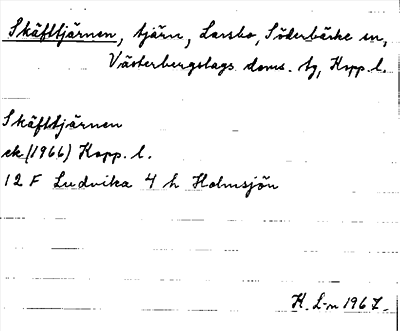 Skäfttjärnen, tjärn, Larsbo, Söderbärke sn,
Västerbergslags doms. tg, Kopp. l.
Skäfttjärnen
ek (1966) Kopp. l.
12 F Ludvika 4 h Holmsjön
H. L-n 1967.